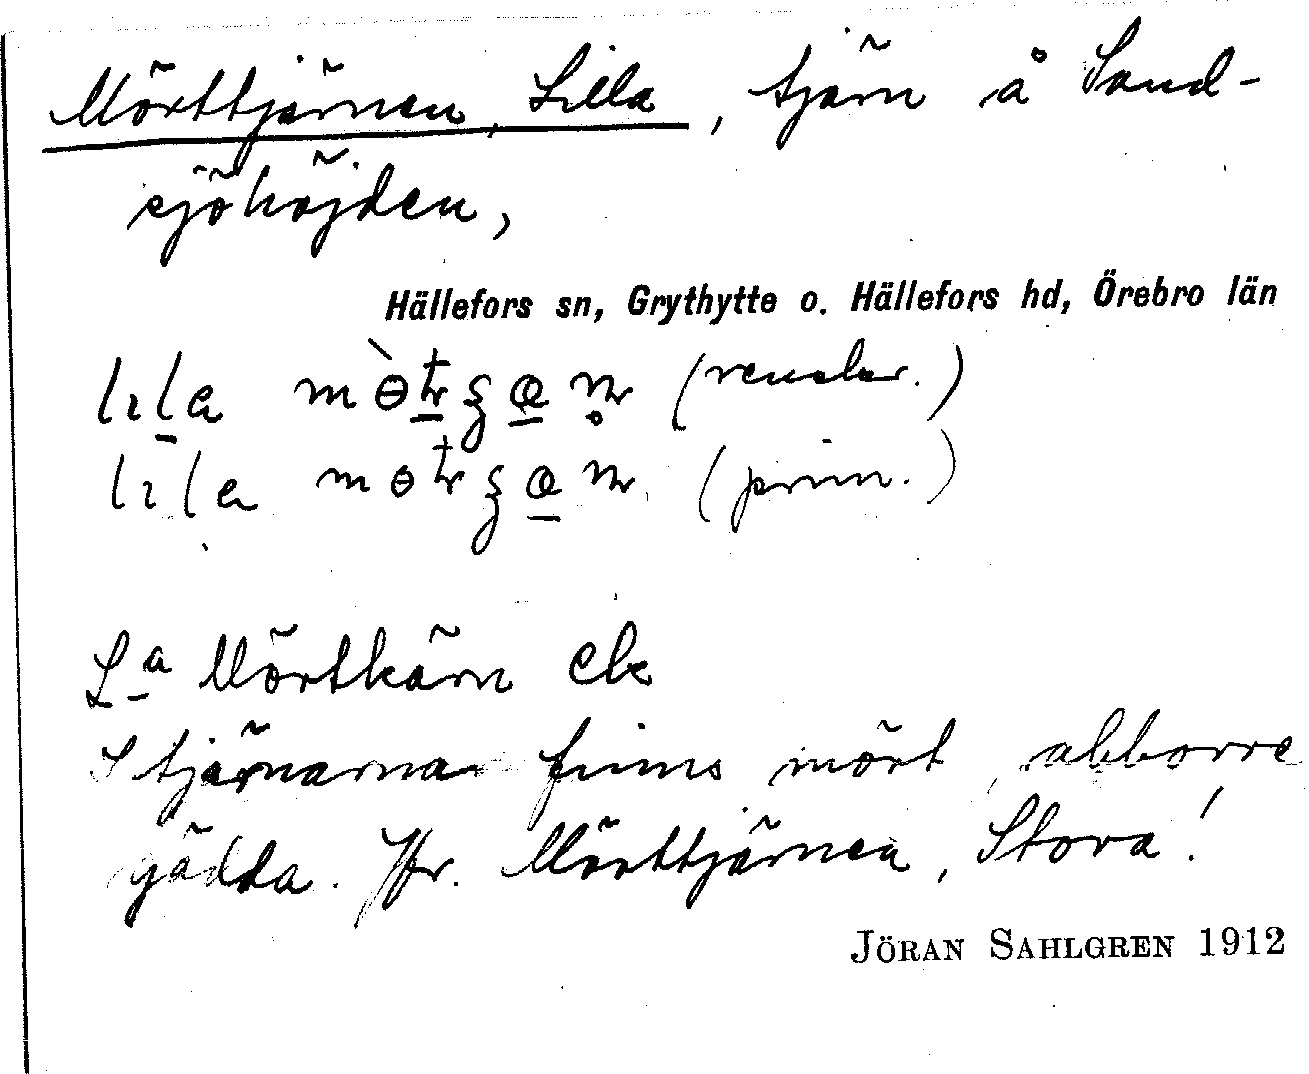 Mörttjärnen, Lilla, tjärn å Sand-
sjöhöjden,
Hällefors sn, Grythytte o. Hällefors hd, Örebro län
(prim.)
La Mörtkärn ek
I tjärnarna finns mört, abborre
gädda. Jfr. Mörttjärnen, Stora!
JÖRAN SAHLGREN 1912